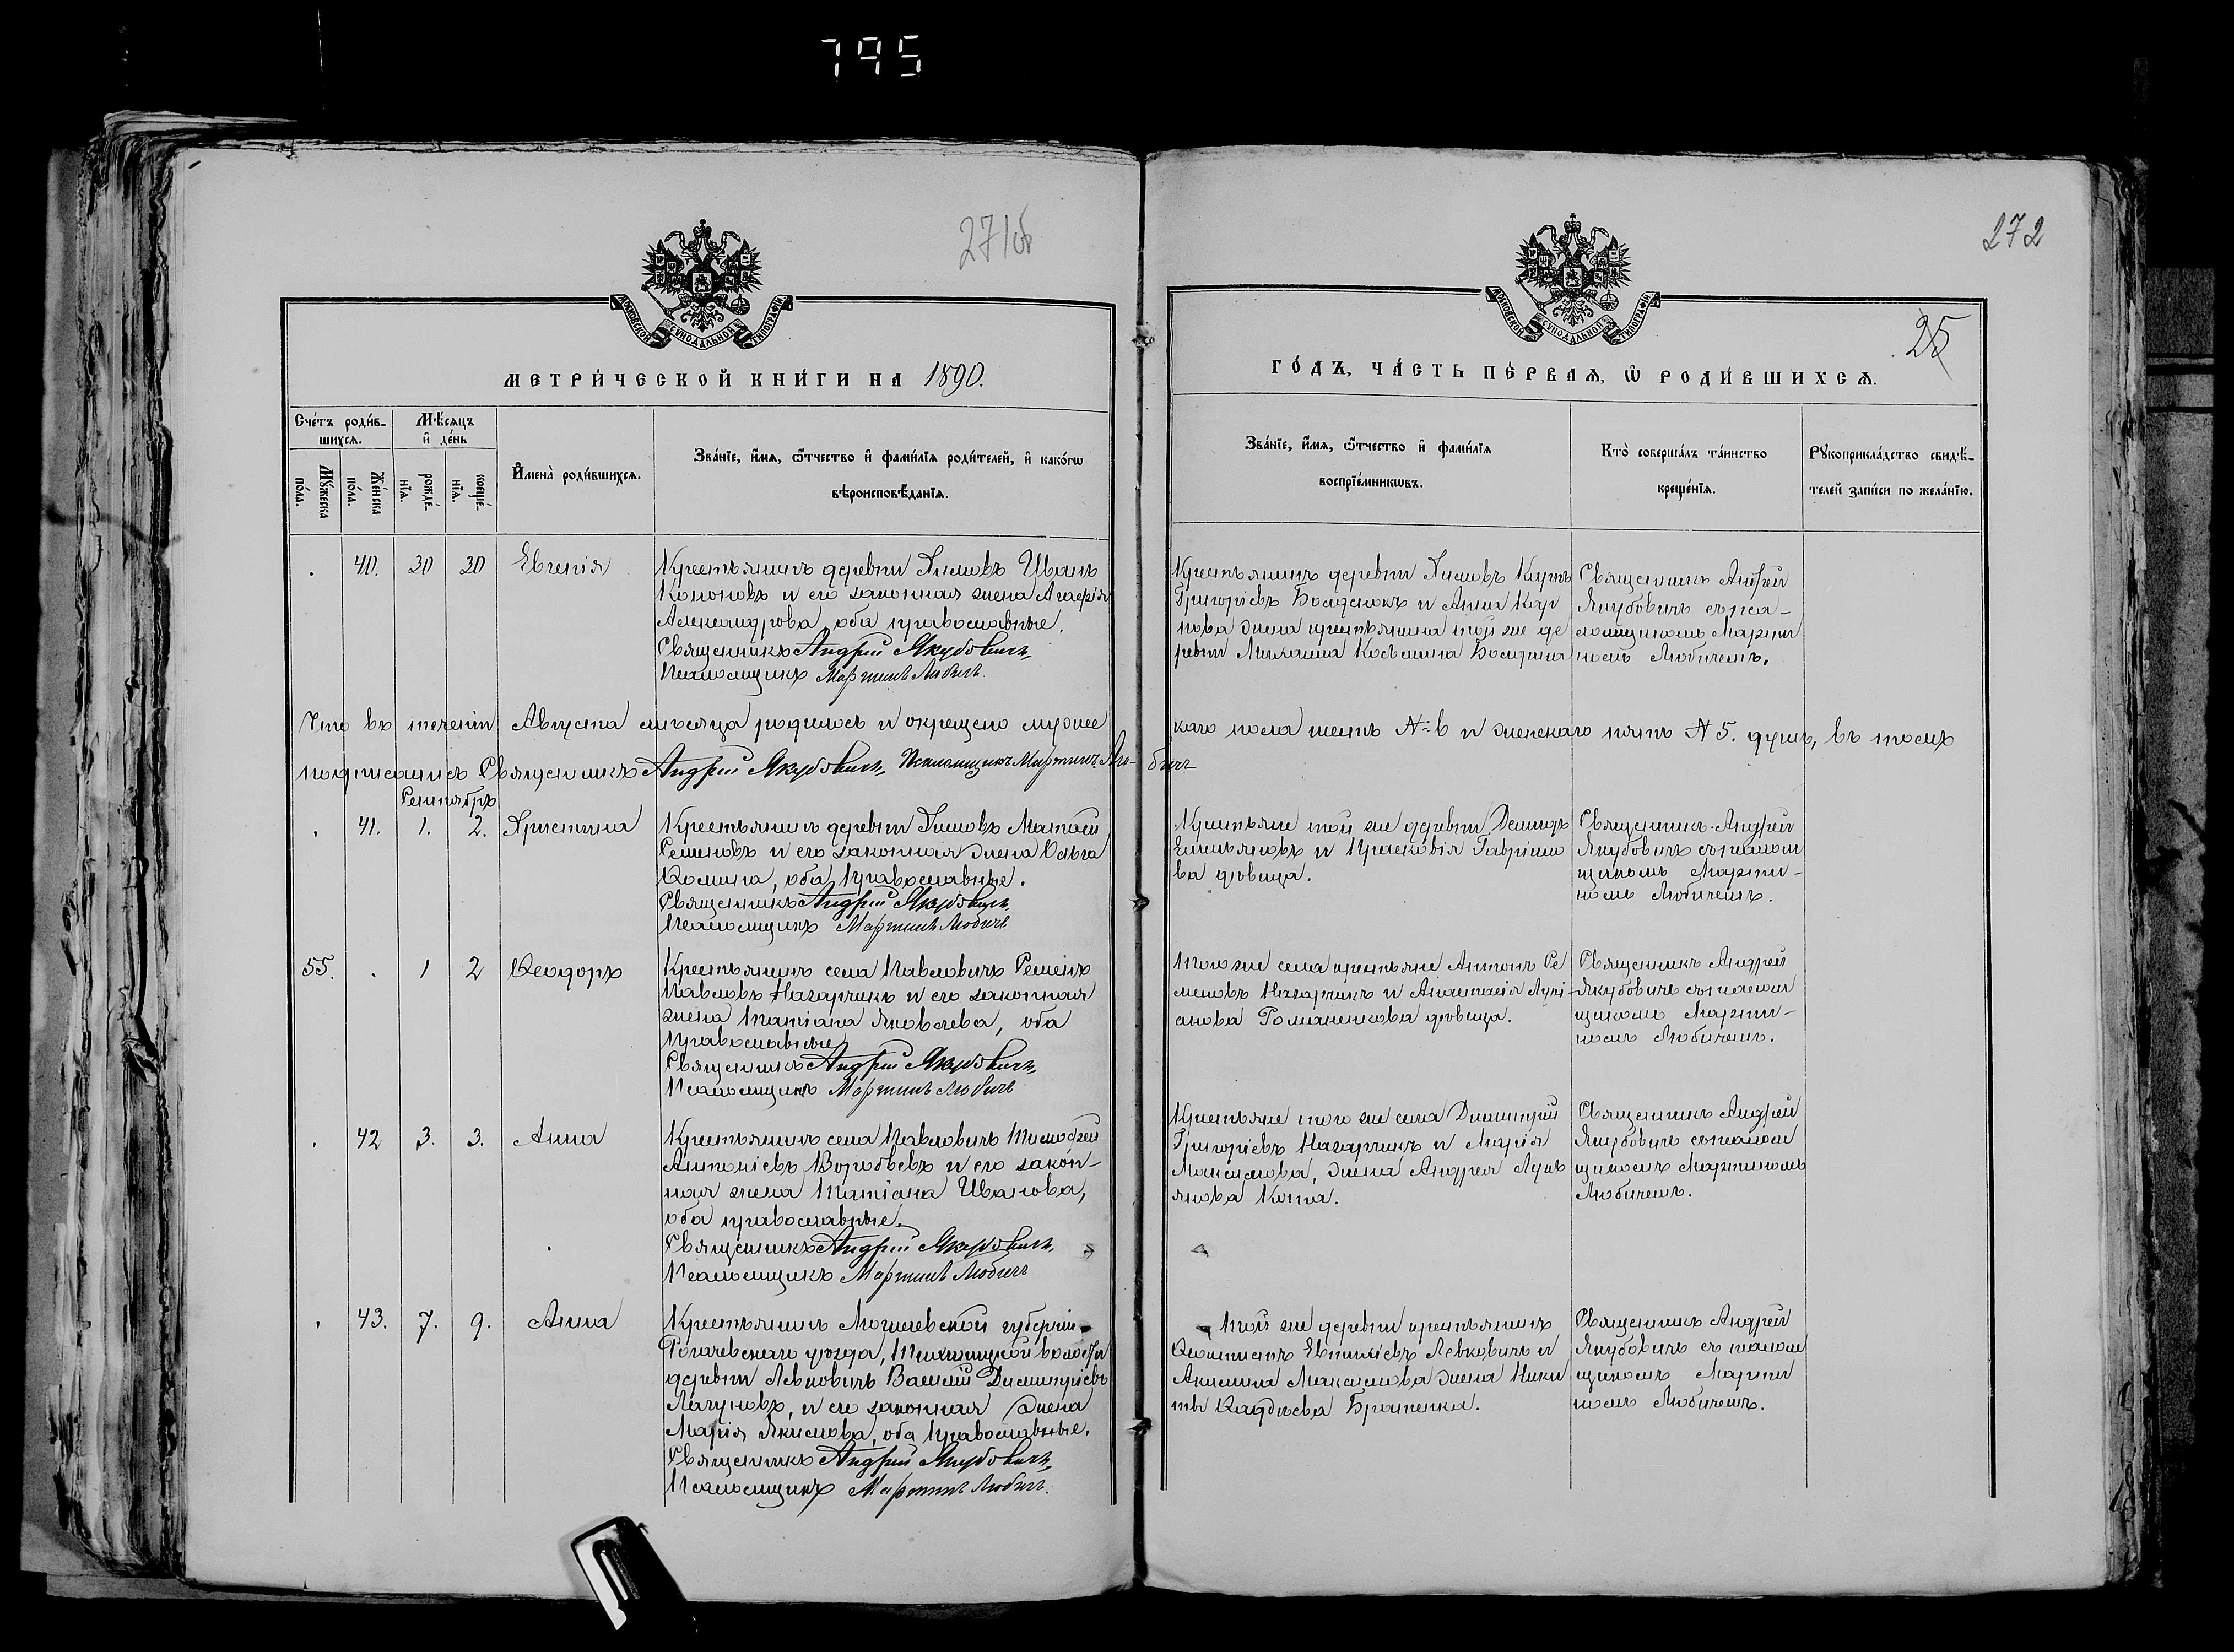 795
271об
272
МОСКОВСКОЙ СУНОДАЛЬНОЙ ТИПОГРАФІИ
МОСКОВСКОЙ СУНОДАЛЬНОЙ ТИПОГРАФІИ
25
МЕТРИ́ЧЕСКОЙ КНИ́ГИ НА 1890.
ГО́ДЪ, ЧА́СТЬ ПЕ́РВАѦ, Ѡ҆ РОДИ́ВШИХСѦ.
Сче́тъ роди́в-
шихсѧ.
Мѣ́сѧцъ
и҆ де́нь
Мꙋ́жеска
по́ла.
Же́нска
по́ла.
рожде́-
нїѧ.
креще́-
нїѧ.
И҆мена̀ роди́вшихсѧ.
Зва́нїе, и҆́мѧ, ѻ҆́тчество и҆ фами́лїѧ роди́телей, и҆ како́гѡ
вѣроисповѣ́данїѧ.
Зва́нїе, и҆́мѧ, ѻ҆́тчество и҆ фами́лїѧ
воспрїе́мникѡвъ.
Кто̀ соверша́лъ та́инство
креще́нїѧ.
Рꙋкоприкла́дство свидѣ́-
телей за́писи по жела́нїю.
40. 30 30 Евгенія
Крестьянинъ деревни Иванъ
Кононовъ и его законная жена Агафія
Александрова, оба православные.
Священникъ Андрей Якубовичъ,
Псаломщикъ Мартинъ Любичъ.
Крестьянинъ деревни
Григоріевъ и Анна Кар
пова жена крестьянина той же де
ревни Михаила Косьмина
Священникъ Андрей
Якубовичъ съ пса-
ломщикомъ Марти
номъ Любичемъ.
Что въ теченіи Августа мѣсяца родилось и окрещено мужес
каго пола шесть № 6 и женскаго пять № 5. душъ, въ томъ
подписались Священникъ Андрей Якубовичъ, Псаломщикъ Мартинъ Лю-
бичъ
Сентябрь
41. 1. 2. Христина
Крестьянинъ деревни Матѳей
Семеновъ и его законная жена Ольга
Ѳомина, оба православные.
Священникъ Андрей Якубовичъ,
Псаломщикъ Мартинъ Любичъ
Крестьяне той же деревни Демидъ
Емельяновъ и Прасковія Гавріило
ва дѣвица.
Священникъ Андрей
Якубовичъ съ псалом
щикомъ Марти-
номъ Любичемъ.
55. 1 2 Ѳеодоръ
Крестьянинъ села Павловичъ Семенъ
Павловъ Назарчикъ и его законная
жена Татіана Яковлева, оба
православные
Священникъ Андрей Якубовичъ,
Псаломщикъ Мартинъ Любичъ
Того же села крестьяне Антонъ Се
меновъ Назарчикъ и Анастасія Лукі-
анова Романенкова дѣвица.
Священникъ Андрей
Якубовичъ съ псалом
щикомъ Марти-
номъ Любичемъ.
42 3. 3. Анна
Крестьянинъ села Павловичъ Тимоѳей
Антоніевъ Воробьевъ и его закон-
ная жена Татіана Иванова,
оба православные.
Священникъ Андрей Якубовичъ,
Псаломщикъ Мартинъ Любичъ
Крестьяне того же села Димитрій
Григоріевъ Назарчикъ и Марія
Максимова, жена Андрея Лукь
янова
Священникъ Андрей
Якубовичъ съ псалом
щикомъ Мартиномъ
Любичемъ.
43. 7. 9. Анна
Крестьянинъ Могилевской губерніи
Рогачевскаго уѣзда, волости
деревни Левковичъ Василій Димитріевъ
Лагуновъ, и его законная жена
Марія Якимова, оба православные.
Священникъ Андрей Якубовичъ,
Псаломщикъ Мартинъ Любичъ.
Той же деревни крестьянинъ
Левковичъ и
Акилина Максимова жена Ники
ты Ѳаддѣева
Священникъ Андрей
Якубовичъ съ псалом
щикомъ Марти
номъ Любичемъ.